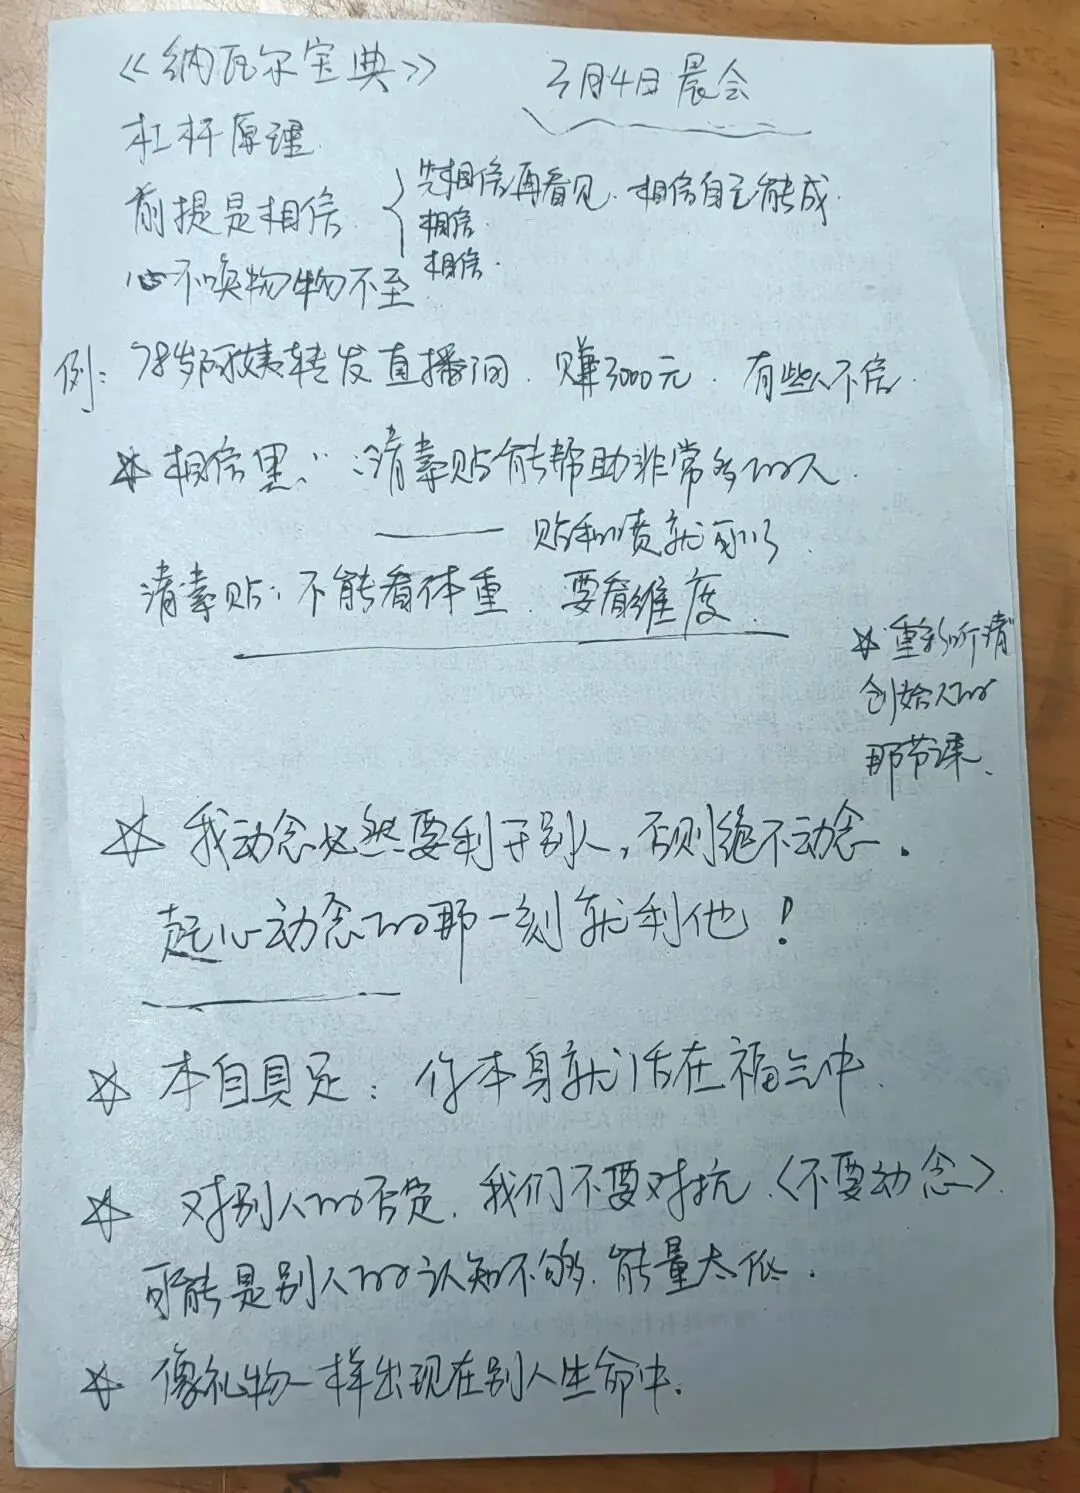 《纳瓦尔宝典》
3月4日 晨会
杠杆原理
前提是相信 { 先相信再看见. 相信自己能成.
相信.
相信.
心不唤物物不至
例: 78岁阿姨转发直播间. 赚3000元. 有些人不信.
☆ 相信果: 清素贴能帮助非常多的人.
—— 贴和喷就可以.
清素贴: 不能看体重. 要看维度.
☆ "重新听清"
创始人的
那节课.
☆ 我动念必然要利于别人, 否则绝不动念.
起心动念的那一刻就利他!
☆ 本自具足: 你本身就活在福气中.
☆ 对别人的否定. 我们不要对抗.〈不要动念〉.
可能是别人的认知不够. 能量太低.
☆ 像礼物一样出现在别人生命中.